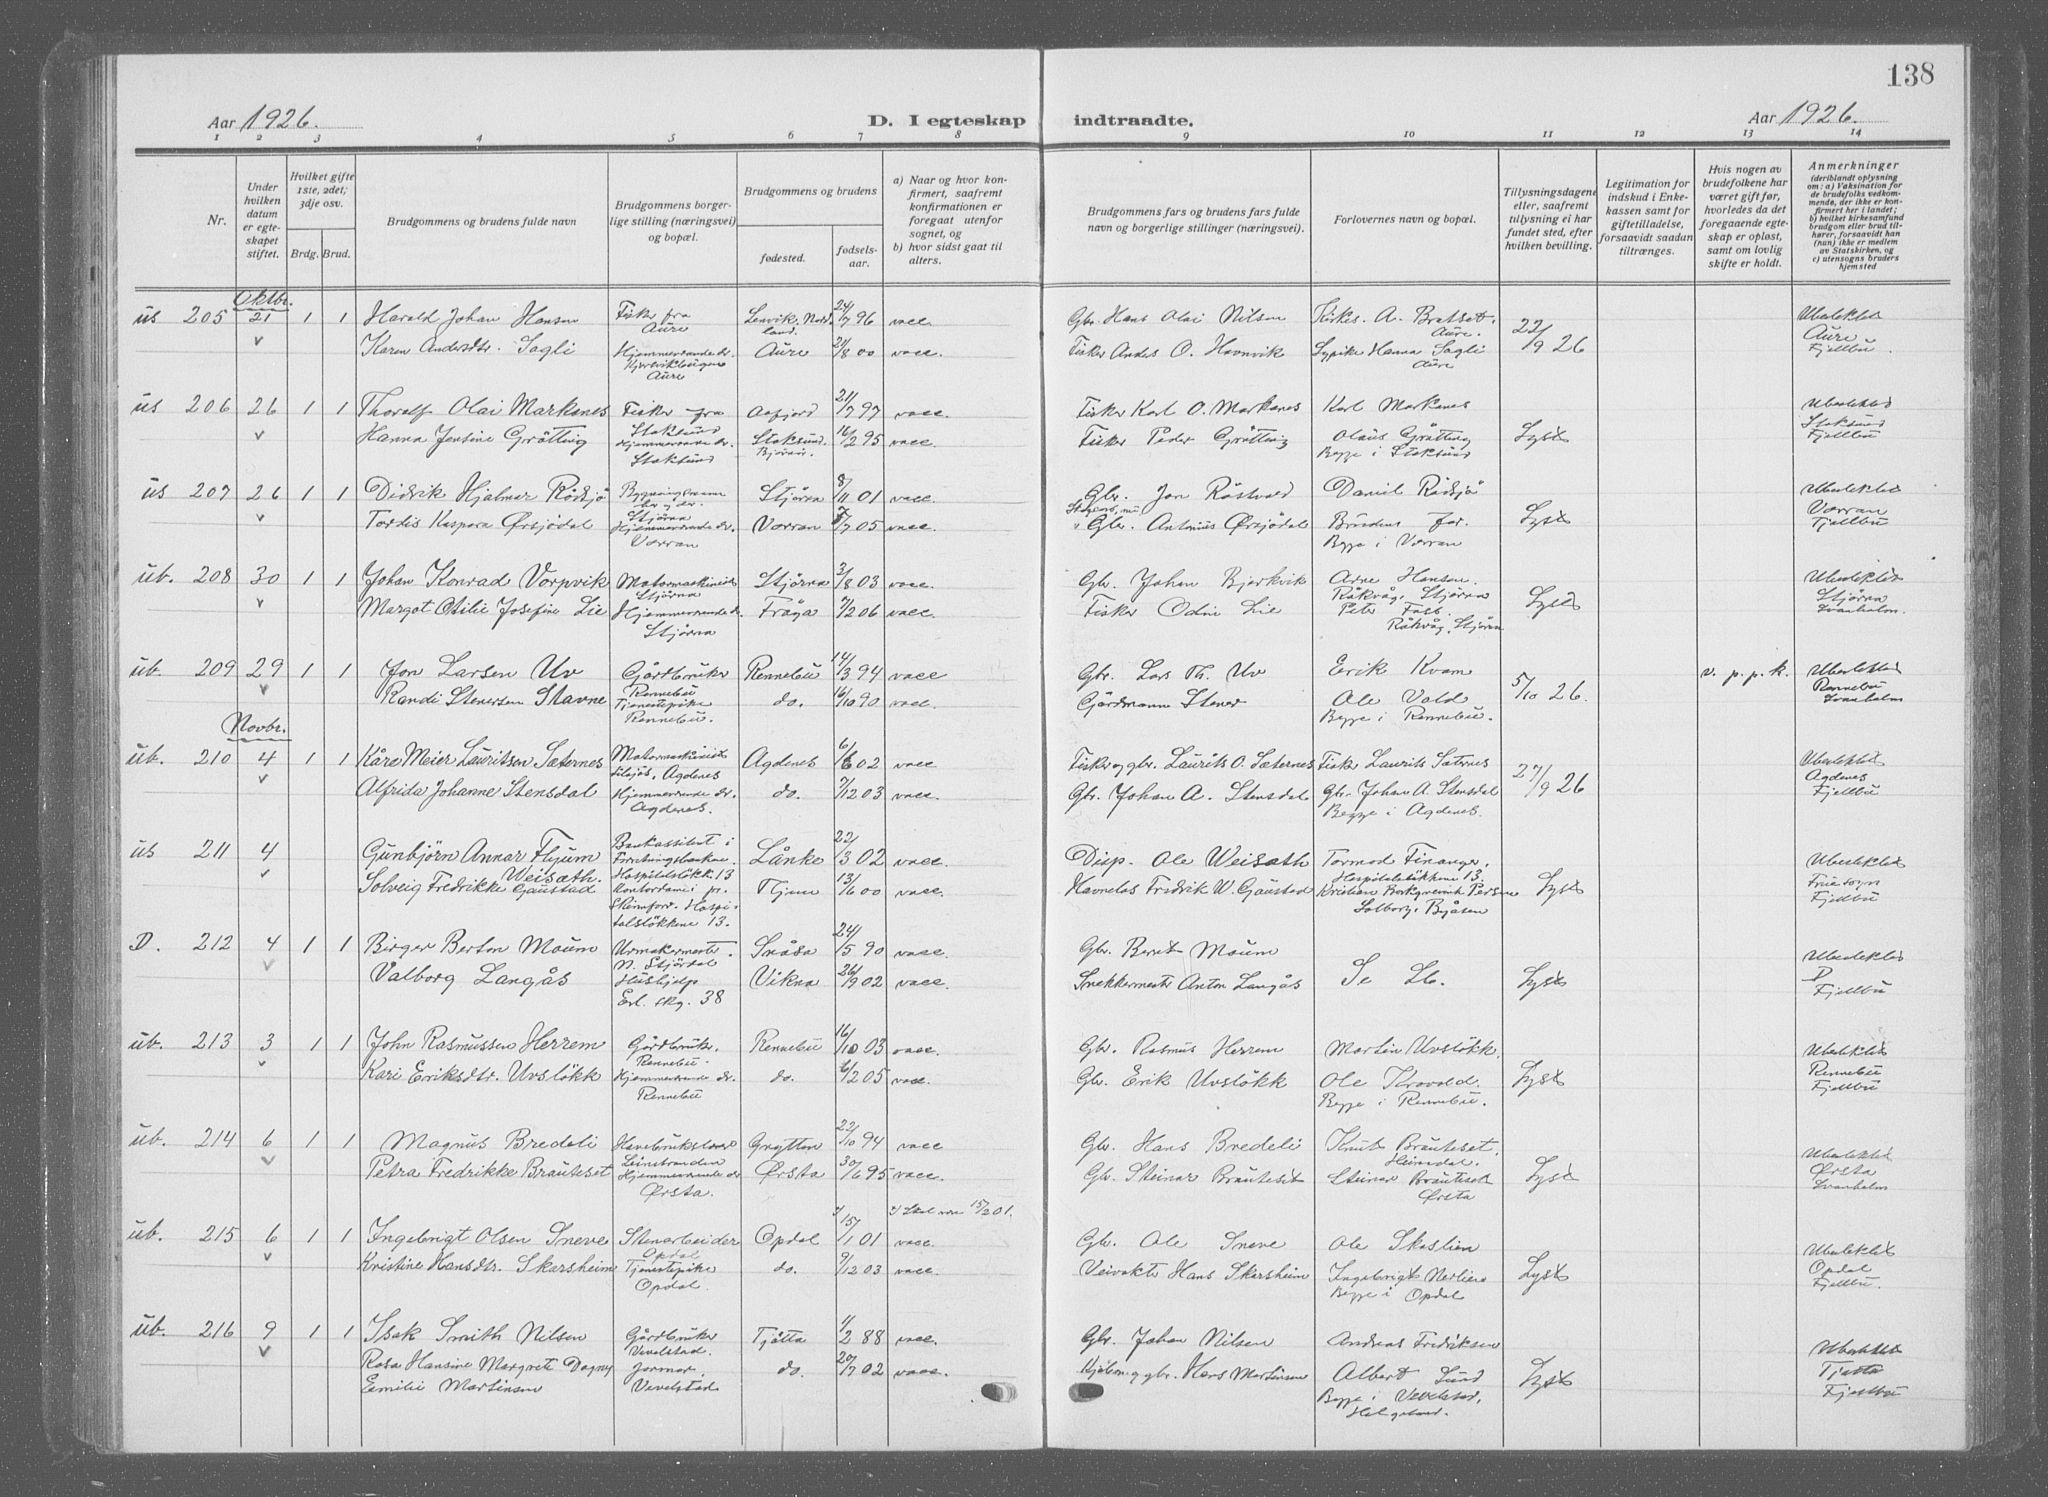 138
Aar 1926.
D. I egteskap indtraadte.
Aar 1926.
1 2 3 4 5 6 7 8 9 10 11 12 13 14
Nr.
Under hvilken datum er egteskapet stiftet.
Hvilket gifte 1ste, 2det; 3dje osv.
Brdg. Brud.
Brudgommens og brudens fulde navn
Brudgommens borgerlige stilling (næringsvei) og bopæl.
Brudgommens og brudens
fødested.
fødselsaar.
a) Naar og hvor konfirmert, saafremt konfirmationen er foregaat utenfor sognet, og
b) hvor sidst gaat til alters.
Brudgommens fars og brudens fars fulde navn og borgerlige stillinger (næringsvei).
Forlovernes navn og bopæl.
Tillysningsdagene eller, saafremt tillysning ei har fundet sted, efter hvilken bevilling.
Legitimation for indskud i Enkekassen samt for giftetilladelse, forsaavidt saadan tiltrænges.
Hvis nogen av brudefolkene har været gift før, hvorledes da det foregaaende egteskap er opløst, samt om lovlig skifte er holdt.
Anmerkninger
(deriblandt oplysning om: a) Vaksination for de brudefolks vedkommende, der ikke er konfirmert her i landet; b) hvilket kirkesamfund brudgom eller brud tilhører, forsaavidt han (hun) ikke er medlem av Statskirken, og c) utensogns bruders hjemsted
Oktbr.
us 205 21 1 1 Harald Johan Hansen Fisker fra Aure Lenvik, Nordland. 24/7 96 vacc. Gbr. Hans Olai Nilsen Kirkes. A. Bratset, Aure. 22/9 26 Ubeslektet
Karen Andersdtr. Sagli Hjemmeværende dr. Aure Aure 21/8 00 vacc. Fisker Anders O. Havnvik Sypike Hanna Sagli Aure Aure Fjellbu.
us 206 26 1 1 Thoralf Olai Markanes Fisker fra Stoksund Aafjord 21/7 97 vacc. Fisker Karl O. Markanes Karl Markanes Ubeslektet
Hanna Jensine Grøtting Hjemmeværende dr. Stoksund Stoksund. Bjørnør. 16/2 95 vacc. Fisker Peder Grøtting Olaus Grøtting Begge i Stoksund Lyst Stoksund Fjellbu
us 207 26 1 1 Didrik Hjalmar Rødsjø Stjørna Stjørna 8/11 01 vacc. Gbr. Jon Røstvold Daniel Rødsjø Ubeslektet
Tordis Kaspara Ørsjødal Hjemmeværende dr. Værran Værran 7/7 05 vacc. Gbr. Antonius Ørsjødal Brudens far. Begge i Værran Lyst Værran Fjellbu
ub. 208 30 1 1 Johan Konrad Vorpvik Motormaskinist Stjørna Stjørna 3/8 03 vacc. Gbr. Johan Bjerkvik Arne Hansen. Råkvåg, Stjørna Ubeslektet
Margot Otilie Josefine Lie Hjemmeværende dr. Stjørna Frøya 7/2 06 vacc. Fisker Odin Lie Peter Råkvåg, Stjørna Lyst Stjørna Svanholm.
ub. 209 29 1 1 Jon Larsen Uv Gårdbruker Rennebu Rennebu 14/3 94 vacc Gbr. Lars Th. Uv Erik Kvam v. p. p. k. Ubeslektet
Randi Stenersen Stavne Tjenestepike Rennebu. do. 16/10 90 vacc. Gårdmann Stener Ole Vold Begge i Rennebu. 5/10 26. Rennebu Svanholm
Novbr.
ub. 210 4 1 1 Kåre Meier Lauritsen Sæternes Motormaskinist Agdenes Agdenes 6/6 02 vacc Fisker og gbr. Laurits O. Sæternes Fisk Laurits Sæternes 27/9 26 Ubeslektet
Alfrida Johanne Stensdal Hjemmeværende dr. Agdenes. do. 7/12 03 vacc. Gbr. Johan A. Stensdal Gbr. Johan A. Stensdal Begge i Agdenes. Agdenes Fjellbu
us 211 4 Gunbjørn Annar Flyum Weisæth. Bankassistent i Forretningsbanken. Hospitalsløkk. 13 Lånke 22/3 02 vacc. Disp. Ole Weisæth Tormod Finanger, Hospitalsløkkene 13. Ubeslektet
Solveig Fredrikke Gaustad Kontordame Hospitalsløkkene 13. 13/6 00 vacc. Fredrik W. Gaustad Kristian Solborg, Byåsen Lyst Fruesogn Fjellbu
D. 212 4 1 1 Birger Berton Moum Urmakermester. N. Stjørdal Snåsa 24/5 90 vacc. Gbr. Bernt Moum Ubeslektet
Valborg Langås Hushjelp Erl. skg. 38 Vikna 26/9 02 vacc. Snekkermestr Anton Langås Se Lb. Lyst D Fjellbu
ub. 213 3 1 1 John Rasmussen Herrem Gårdbruker. Rennebu. Rennebu 16/10 03 vacc. Gbr. Rasmus Herrem Martin Uvsløkk. Ubeslektet
Kari Eriksdtr. Uvsløkk Hjemmeværende dr. Rennebu do. 6/2 05 vacc. Gbr. Erik Uvsløkk Ole Krovold. Begge i Rennebu. Lyst Rennebu Fjellbu
ub. 214 6 1 1 Magnus Bredeli Havebrukslærer Leinstranden Grytten 22/10 94 vacc Gbr. Hans Bredeli Knut Brauteset, Heimdal. Ubeslektet
Petra Fredrikke Brauteset Hjemmeværende dr Ørsta. Ørsta 30/6 95 vacc. Gbr. Steinar Brauteset Steinar Brauteset Ørsta Lyst Ørsta Svanholm
x) x) Skal være 15/2 01.
ub. 215 6 1 1 Ingebrigt Olsen Sneve Stenarbeider Opdal Opdal 15/1 01 vacc. Gbr. Ole Sneve Ole Skaslien Ubeslektet
Kristine Hansdtr. Skarsheim Tjenestepike Opdal do. 9/12 03 vacc. Veivokter Hans Skarsheim Ingebrigt Begge i Opdal Lyst Opdal Fjellbu.
ub. 216 9 1 1 Isak Smith Nilsen Gårdbruker Vevelstad. Tjøtta 4/2 88 vacc. Gbr. Johan Nilsen Andreas Fredriksen Ubeslektet
Rosa Hansine Margrete Dagny Emilie Martinsen Jormor, Vevelstad do. 20/7 02 vacc. gbr. Hans Martinsen Albert Lund Begge i Vevelstad, Helgeland. Lyst Tjøtta Fjellbu